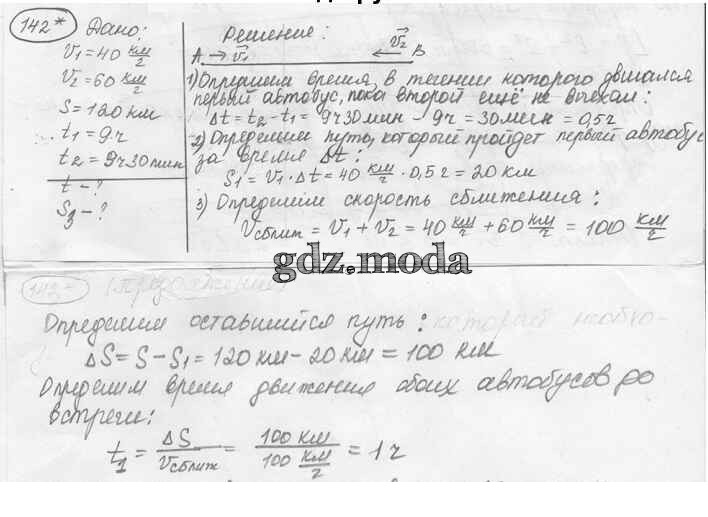 142* Дано:
V₁ = 40 км/ч
V₂ = 60 км/ч
S = 120 км
t₁ = 9 ч
t₂ = 9ч30мин
t - ?
S₃ - ?
Решение:
A → v⃗₁ ← v⃗₂ B
1) Определим время, в течении которого двигался
первый автобус, пока второй ещё не выехал:
Δt = t₂ - t₁ = 9ч30мин - 9ч = 30мин = 0,5ч
2) Определим путь, который пройдет первый автобус
за время Δt:
S₁ = V₁ · Δt = 40 км/ч · 0,5 ч = 20 км
3) Определим скорость сближения:
Vсближ = V₁ + V₂ = 40 км/ч + 60 км/ч = 100 км/ч
gdz.moda
142* (продолжение)
Определим оставшийся путь: который необхо-
ΔS = S - S₁ = 120 км - 20 км = 100 км
Определим время движения обоих автобусов до
встречи:
t₁ = ΔS/Vсближ = 100 км/100 км/ч = 1 ч